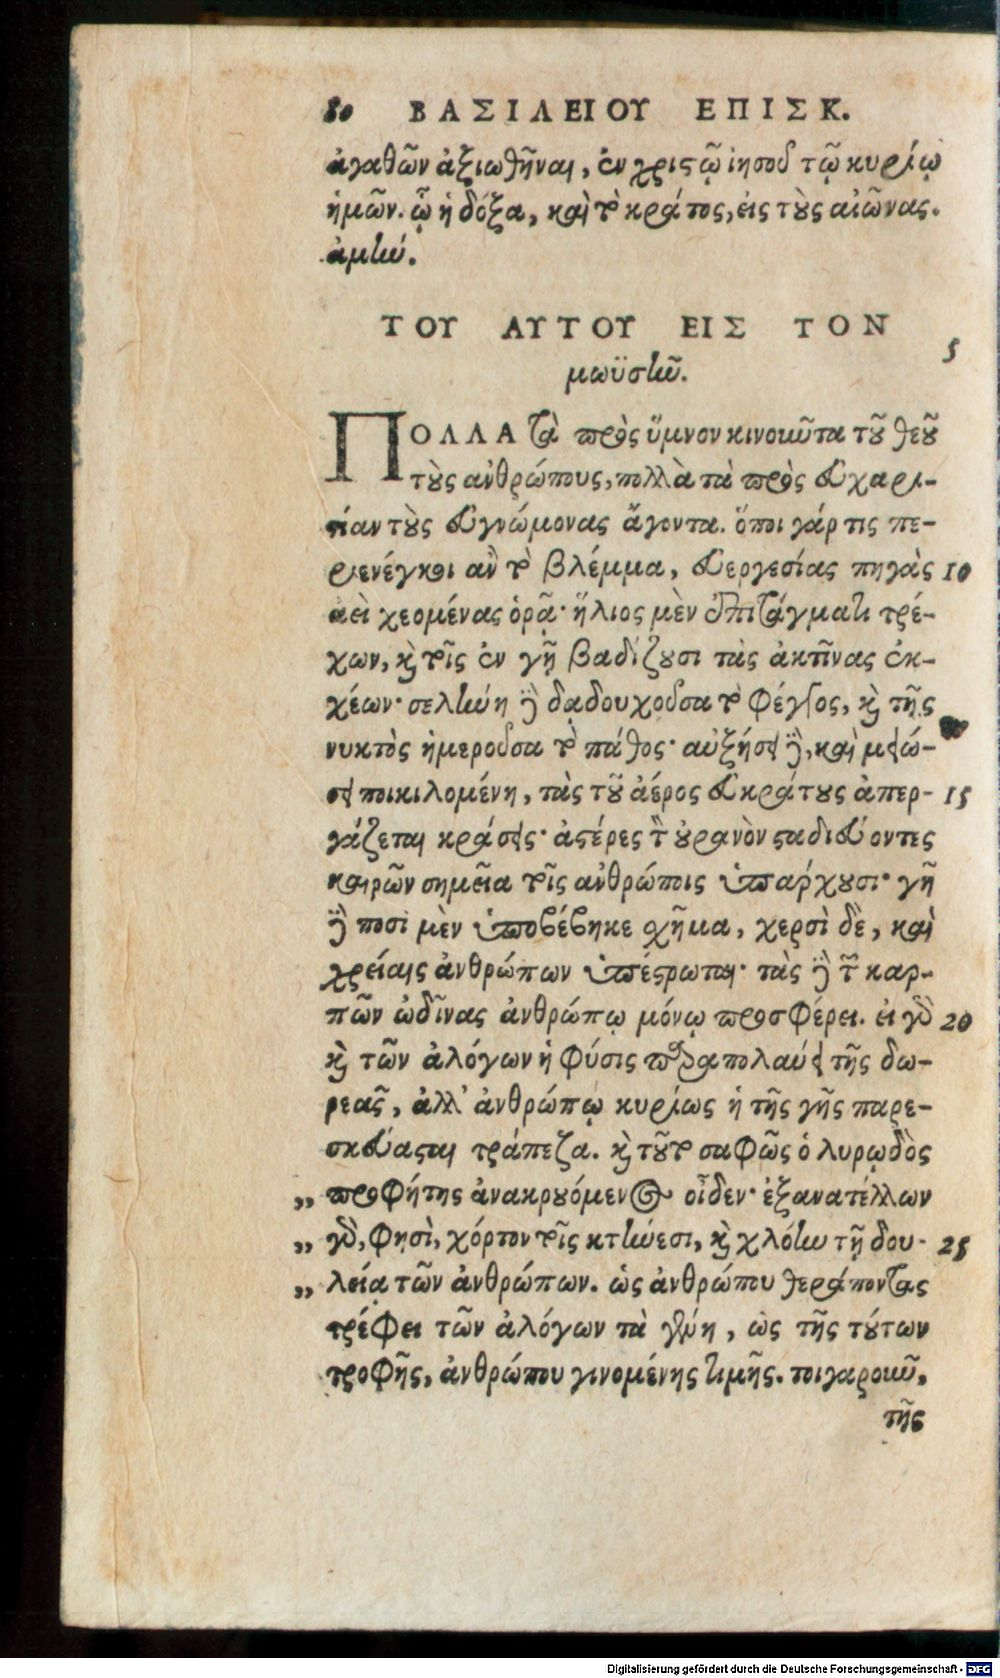 80 ΒΑΣΙΛΕΙΟΥ ΕΠΙΣΚ.
ἀγαθῶν ἀξιωθῆναι, ἐν χριστῷ ἰησοῦ τῷ κυρίῳ
ἡμῶν. ᾧ ἡ δόξα, καὶ τὸ κράτος, εἰς τοὺς αἰῶνας.
ἀμήν.
ΤΟΥ ΑΥΤΟΥ ΕΙΣ ΤΟΝ
5
μωϋσῆν.
ΠΟΛΛΑ τὰ πρὸς ὕμνον κινοῦντα τοῦ θεοῦ
τοὺς ἀνθρώπους, πολλὰ τὰ πρὸς εὐχαρι-
στίαν τοὺς εὐγνώμονας ἄγοντα. ὅποι γάρ τις πε-
ριενέγκοι ἂν τὸ βλέμμα, εὐεργεσίας πηγὰς 10
ἀεὶ χεομένας ὁρᾷ· ἥλιος μὲν ἐπιτάγματι τρέ-
χων, καὶ τοῖς ἐν γῇ βαδίζουσι τὰς ἀκτῖνας ἐκ-
χέων· σελήνη δὲ δᾳδουχοῦσα τὸ φέγγος, καὶ τῆς
νυκτὸς ἡμεροῦσα τὸ πάθος· αὐξήσει δὲ, καὶ μειώ-
σει ποικιλομένη, τὰς τοῦ ἀέρος εὐκράτους ἀπερ- 15
γάζεται κράσεις· ἀστέρες τὸν οὐρανὸν σταδιεύοντες
καιρῶν σημεῖα τοῖς ἀνθρώποις ὑπάρχουσι· γῆ
δὲ ποσὶ μὲν ὑποβέβηκε ὄχημα, χερσὶ δὲ, καὶ
χρείαις ἀνθρώπων ὑπέστρωται· τὰς δὲ τῶν καρ-
πῶν ὠδῖνας ἀνθρώπῳ μόνῳ προσφέρει. εἰ γὰρ 20
καὶ τῶν ἀλόγων ἡ φύσις παραπολαύει τῆς δω-
ρεᾶς, ἀλλ' ἀνθρώπῳ κυρίως ἡ τῆς γῆς παρε-
σκεύασται τράπεζα. καὶ τοῦτο σαφῶς ὁ λυρῳδὸς
„ προφήτης ἀνακρουόμενος οἶδεν· ἐξανατέλλων
„ γὰρ, φησὶ, χόρτον τοῖς κτήνεσι, καὶ χλόην τῇ δου- 25
„ λείᾳ τῶν ἀνθρώπων. ὡς ἀνθρώπου θεράποντας
τρέφει τῶν ἀλόγων τὰ γένη, ὡς τῆς τούτων
τροφῆς, ἀνθρώπου γινομένης τιμῆς. τοιγαροῦν,
τῆς
Digitalisierung gefördert durch die Deutsche Forschungsgemeinschaft - DFG